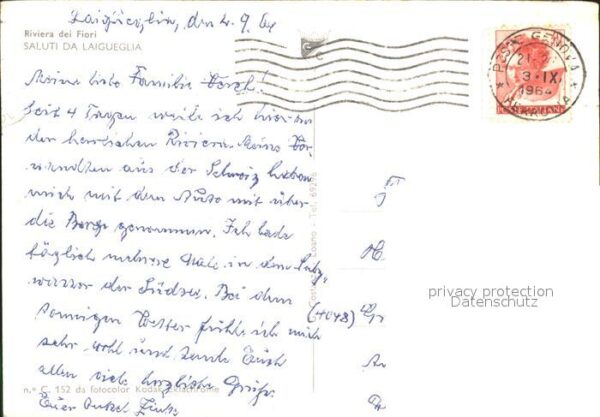 Laigueglia, den 4.9.64
Riviera dei Fiori
SALUTI DA LAIGUEGLIA
Meine liebe Familie Bosch!
Seit 4 Tagen weile ich hier an
der herrlichen Riviera. Meine Ver-
wandten aus der Schweiz haben
mich mit dem Auto mit über
die Berge genommen. Ich bade
täglich mehrere Male in dem Salz-
wasser der Südsee. Bei dem
sonnigen Wetter fühle ich mich
sehr wohl und sende Euch
allen viele herzliche Grüße
Euer Onkel
n.° C. 152 da fotocolor Kodak Ektachrome
Tel. 69276
POSTE GENOVA
21
3·IX
1964
(4048)
privacy protection
Datenschutz